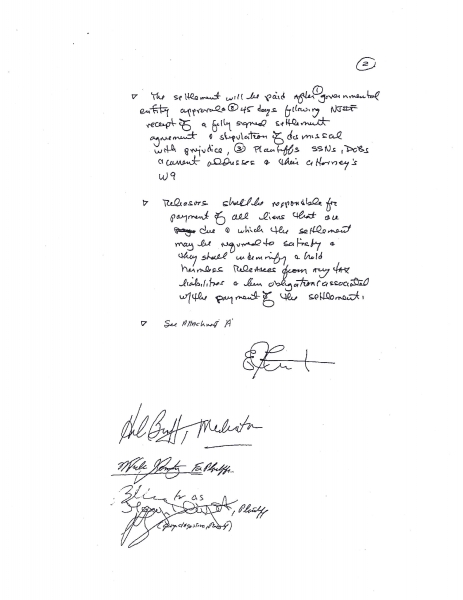 2
▽ The settlement will be paid after ① governmental
entity approvals ② 45 days following
receipt of a fully signed settlement
agreement & stipulation of dismissal
with prejudice, ③ Plaintiffs SSNs, DOBs
current addresses & their attorney's
W9
▽ Releasors shall be responsible for
payment of all liens that are
due & which the settlement
may be required to satisfy &
they shall indemnify & hold
harmless Releasees from any tax
liabilities & lien obligations associated
w/the payment of the settlement.
▽ See Attachment A
Mediator